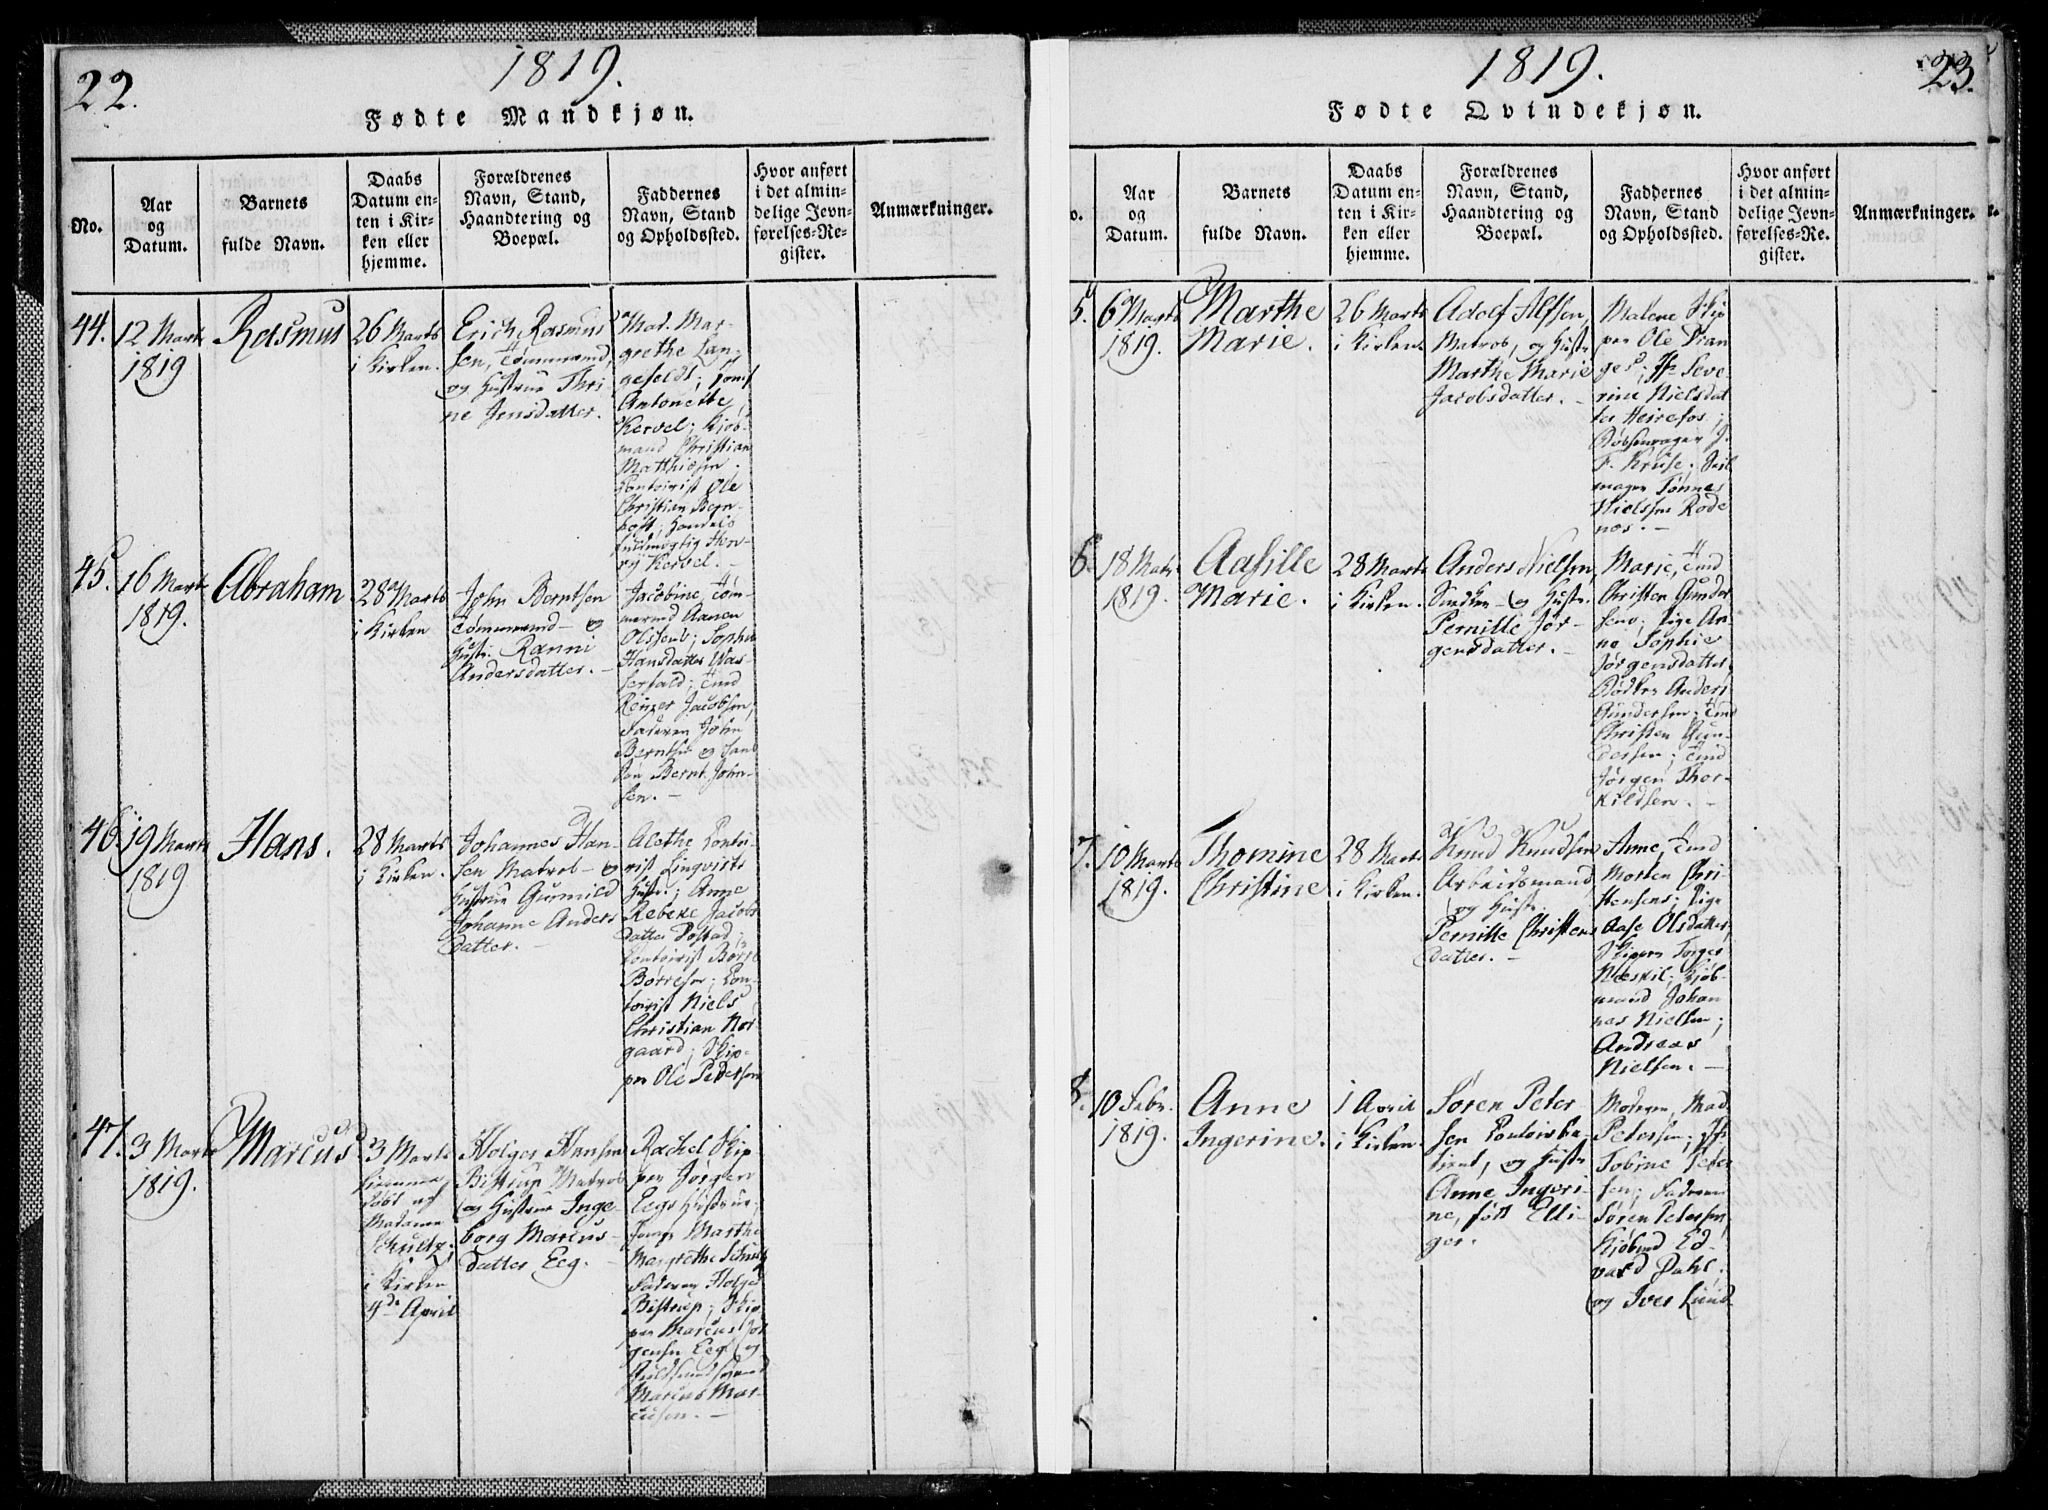 22.
1819.
Fødte Mandkjøn.
No.
Aar
og
Datum.
Barnets
fulde Navn.
Daabs
Datum en-
ten i Kir-
ken eller
hjemme.
Forældrenes
Navn, Stand,
Haandtering og
Boepæl.
Faddernes
Navn, Stand
og Opholdssted.
Hvor anført
i det almin-
delige Jevn-
førelses-Re-
gister.
Anmærkninger.
44.
12 Marts
1819
Rasmus
26 Marts
i Kirken.
Erich Rasmus
sen, Tømmermd,
og Hustrue Thri
ne Jensdatter.
Mad. Mar-
grethe Lan-
gefeldt; Jomf
Antonette
Kervel; Kjøb-
mand Christian
Matthiesen;
Contoirist Ole
Christian Bern-
hoft; Handels
fuldmægtig Hen-
ry Kervel. -
45.
16 Marts
1819.
Abraham
28 Marts
i Kirken
John Berntsen
Tømmermd - og
Hustr. Ranni
Andersdatter. -
Jacobine, Tøm-
mermd Aanen
Olsens; Sophie
Hansdatter Was-
serfald; Tmd
Reinzer Jacobsen;
Faderen John
Berntsen og hans
Søn Bernt John-
sen. -
46.
19 Marts
1819
Hans.
28 Marts
i Kirken.
Johannes Han-
sen Matros - og
Hustrue Gunnild
Johanne Anders
datter. -
Alethe Contoi-
rist Linqvists
Hustr.; Anne
Rebekke Jacobs
datter Postad;
Contoirist Børre
Børresen; Con-
toirist Niels
Christian Nør-
gaard; Skip-
per Ole Pedersen
47.
3 Marts
1819.
Marcus
3 Marts
hjemme
døbt af
Madame
Schultz;
i Kirken
4de April
Holger Hansen
Bistrup Matros
og Hustrue Inge-
borg Marcus-
datter Eeg. -
Rachel Skip-
per Jørgen
Eegs Hustrue;
Jomf Marthe
Margrethe Schultz
Faderen Holger
Bistrup; Skip-
per Marcus Jør
gensen Eeg og
Marcus Mar-
cusen. -
23.
1819.
Fødte Qvindekjøn.
o.
Aar
og
Datum.
Barnets
fulde Navn.
Daabs
Datum en-
ten i Kir-
ken eller
hjemme.
Forældrenes
Navn, Stand,
Haandtering og
Boepæl.
Faddernes
Navn, Stand
og Opholdssted.
Hvor anført
i det almin-
delige Jevn-
førelses-Re-
gister.
Anmærkninger.
5.
6 Marts
1819.
Marthe
Marie.
26 Marts
i Kirken.
Adolf Alfsen,
Matros, og Hustr
Marthe Marie
Jacobsdatter. -
Malene Skip
per Ole Dran
ges; Jfr Seve-
rine Nielsdat
ter Heirefos;
Bøbsemager J.
F. Kruse; Seil
mager Tønnes
Nielsen Rode
nes. -
6.
18 Marts
1819.
Aasille
Marie.
28 Marts
i Kirken.
Anders Nielsen,
Snedker - og Hustr.
Pernille Jør-
gensdatter. -
Marie, Tmd
Christen Gunder
sens; Pige An-
ne Sophie
Jørgensdatter
Bødker Anders
Gundersen; Tmd
Christen Gun-
dersen; Tmd
Jørgen Thor-
kildsen. -
7.
10 Marts
1819.
Thomine
Christine
28 Marts
i Kirken.
Knud Knudsen
Arbeidsmand
og Hustr.
Pernille Christens
datter. -
Anne, Tmd
Morten Chri-
stensens; Pige
Aase Olsdatter
Skipper Torger
Næskil; Kjøb-
mand Johan
nes Nielsen;
Andreas
Nielsen. -
8.
10 Febr.
1819.
Anne
Ingerine.
1 April
i Kirken.
Søren Peter
sen Contoirbe
tient, og Hustr
Anne Ingeri-
ne, født Elli-
ger.
Moderen, Mad
Petersen; Jfr
Tobine Peter
sen; Faderen
Søren Petersen
Kjøbmd Ed-
vard Dahl
og Iver Lund